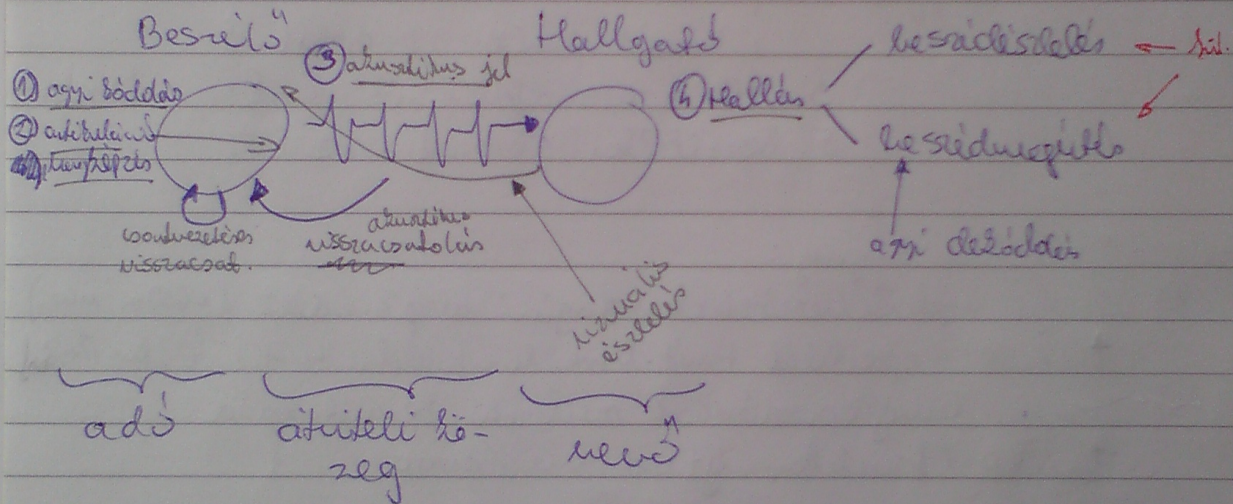 Beszélő
Hallgató
① agyi kódolás
② artikuláció
hangképzés
③ akusztikus jel
④ Hallás
beszédészlelés
beszédmegértés
agyi dekódolás
csontvezetéses
visszacsat.
akusztikus
visszacsatolás
vizuális
észlelés
adó
átviteli kö-
zeg
vevő